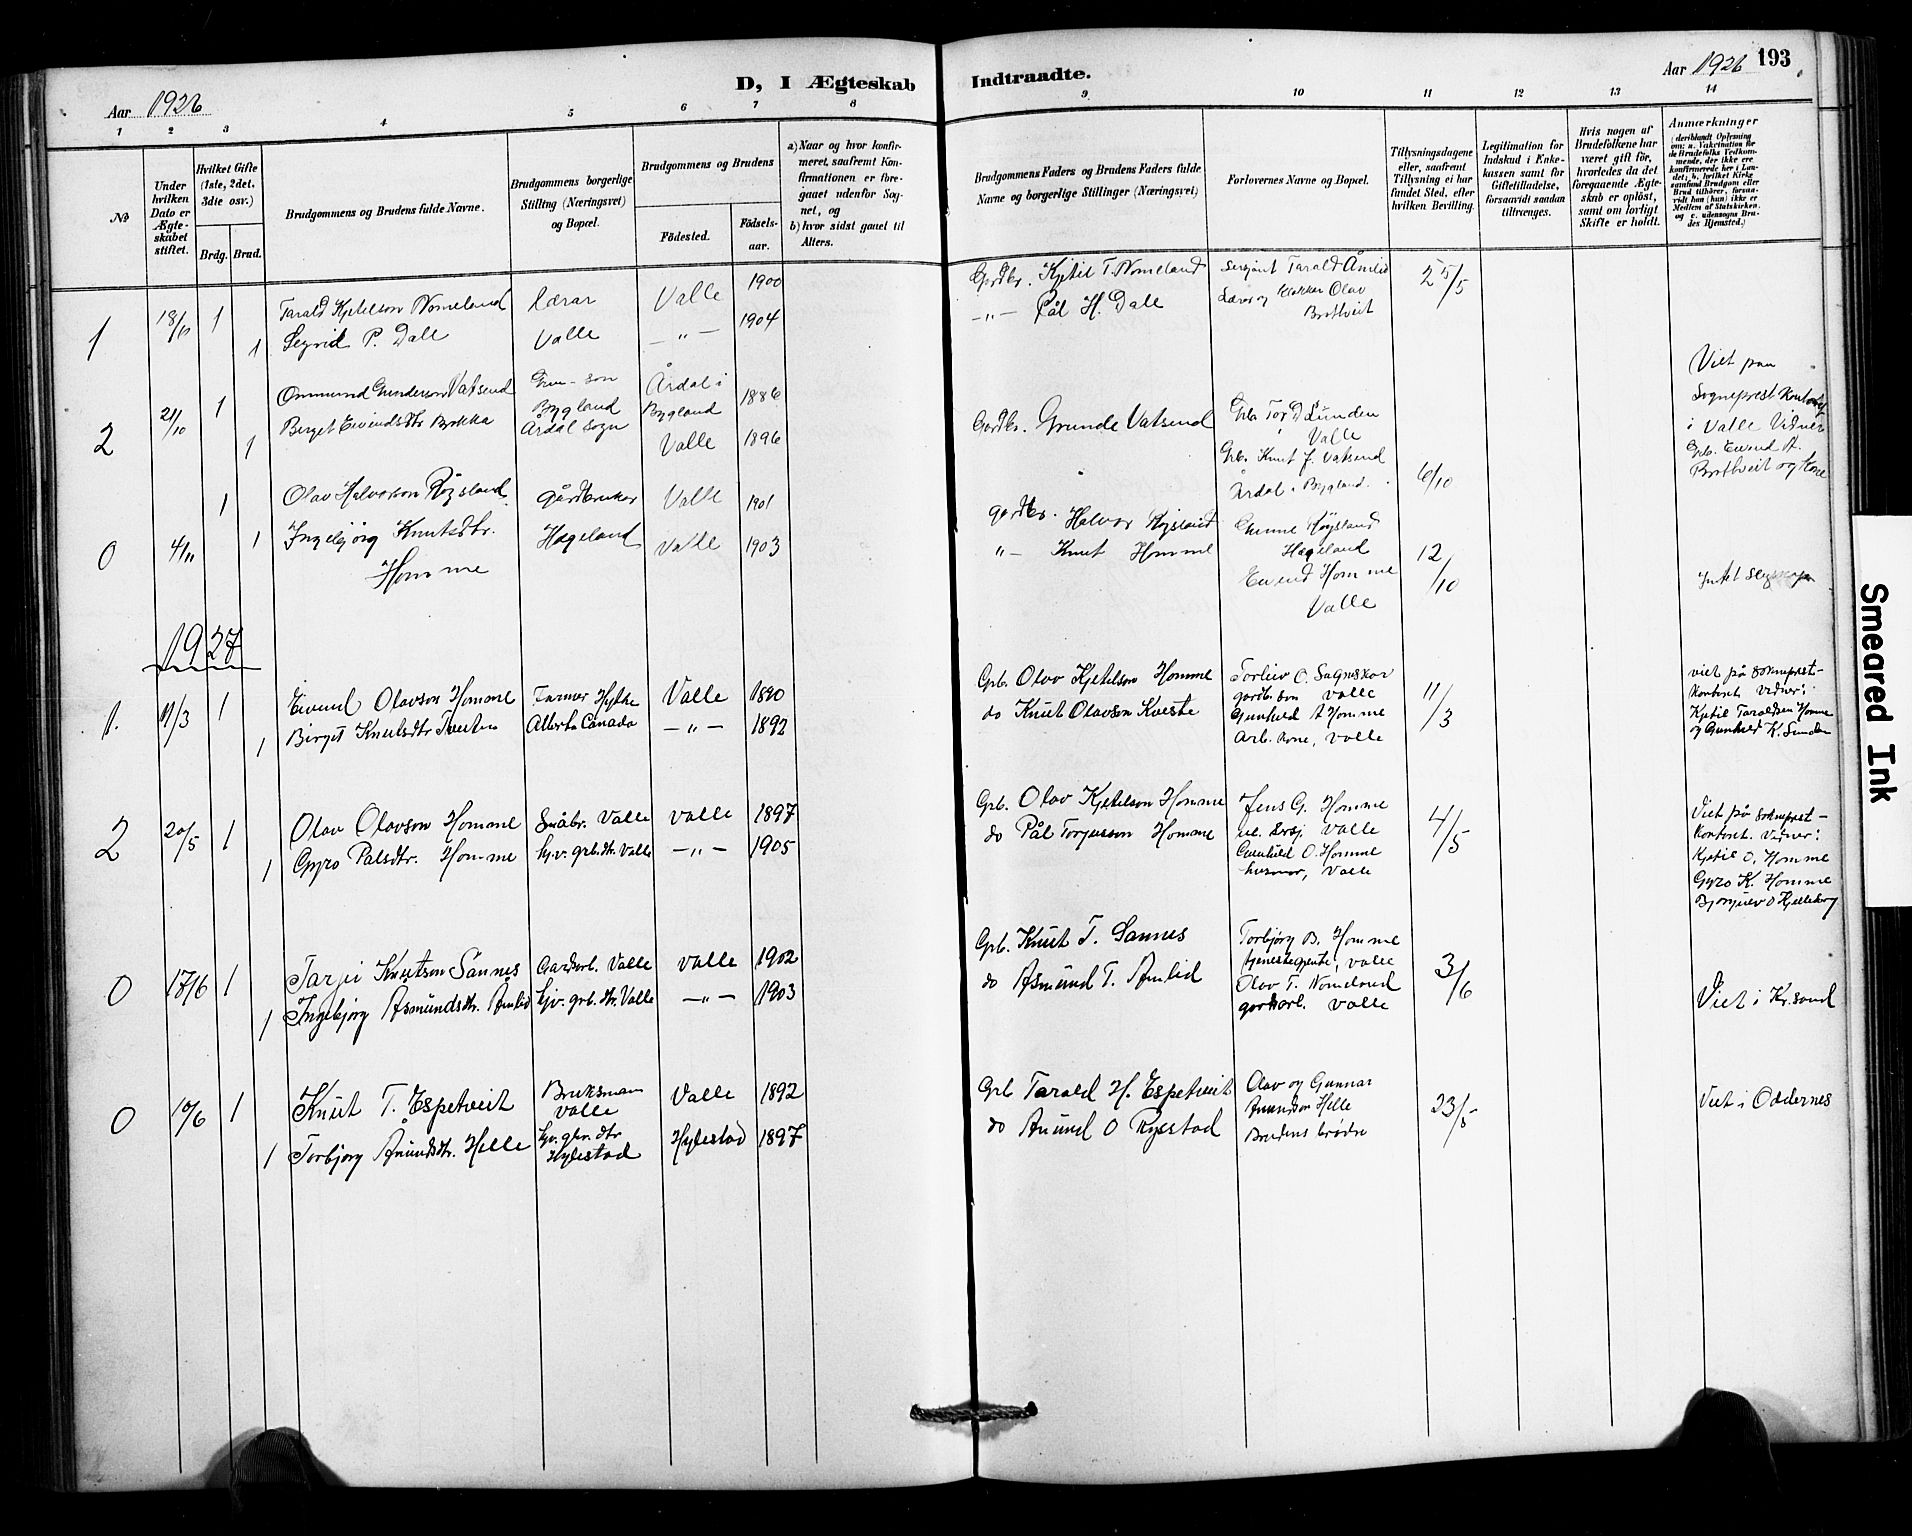 D, I Ægteskab
Indtraadte.
Aar 1926
Aar 1926 193
1 2 3 4 5 6 7 8
9 10 11 12 13 14
No
Under hvilken Dato er Ægteskabet stiftet.
Hvilket Gifte (1ste, 2det, 3die osv.)
Brdg. Brud.
Brudgommens og Brudens fulde Navne.
Brudgommens borgerlige Stilling (Næringsvei) og Bopæl.
Brudgommens og Brudens
Födested.
Födselsaar.
a) Naar og hvor konfirmeret, saafremt Konfirmationen er foregaaet udenfor Sognet, og
b) hvor sidst gaaet til Alters.
Brudgommens Faders og Brudens Faders fulde Navne og borgerlige Stillinger (Næringsvei)
Forlovernes Navne og Bopæl.
Tillysningsdagene eller, saafremt Tillysning ei har fundet Sted, efter hvilken Bevilling.
Legitimation for Indskud i Enkekassen samt for Giftetilladelse, forsaavidt saadan tiltrænges.
Hvis nogen af Brudefolkene har været gift för, hvorledes da det foregaaende Ægteskab er oplöst, samt om lovligt Skifte er holdt.
Anmærkninger
(deriblandt Oplysning om: a. Vakcination for de Brudefolks Vedkommende, der ikke ere konfirmerede her i Landet; b. hvilket Kirkesamfund Brudgom eller Brud tilhörer, forsaavidt han (hun) ikke er Medlem af Statskirken, og c. udensogns Brudes Hjemsted.)
1 18/10 1 Tarald Kjetelson Nomeland Lærar Valle 1900 Gardbr. Kjetil T. Nomeland Sersjant Tarald Åmlid 25/5
1 Sigrid P. Dale Valle —„— 1904 —„— Pål H. Dale Lærer og klokker Olav
Brottveit
2 21/10 1 Ommund Gunderson Vatsend Grm-son Årdal i 1886 Gardbr. Grunde Vatsend Grb. Tor D Lunden Viet paa
1 Birget Eivendsdtr Brokka Bygland Bygland Valle Sogneprest Kontoret
Årdal sogn Valle 1896 Grb. Knut J. Vatsend 6/10 i Valle Vidner
Årdal i Bygland. Grb. Eivend A.
Brottveit og kone
0 4/11 1 Olav Halvorson Røysland gårdbruker Valle 1901 gardbr. Halvor Røysland Gunne Røysland 12/10
1 Ingebjörg Knutsdtr. Hægeland Valle 1903 „— Knut Homme Hægeland
Homme Eivend Homme
Valle
1927
1. 11/3 1 Eivend Olavson Homme Farmer Hythe Valle 1890 Grb. Olav Kjetelson Homme Torleiv O. 11/3 viet på sokneprest-
1 Birget Knutsdtr Tveiten Alberta Canada —„— 1892 do Knut Olavson Kveste gardb. son Valle kontoret vidner:
Gunhild A Homme Kjetil Taraldsen Homme
Arb. kone, Valle og Gunhild K. Lunden
2 20/5 1 Olav Olavson Homme Småbr. Valle Valle 1897 Grb. Olav Kjetelson Homme Jens G. Homme 4/5 Viet på sokneprest-
1 Gyro Palsdtr. Homme hjv. grb. dtr. Valle —„— 1905 do Pål Torjusson Homme Valle kontoret. vidner:
Gunhild O. Homme Kjetil O. Homme
husmor, Valle Gyro K. Homme
Bjorgulv O Kjelleberg
0 17/6 1 Tarjei Knutson Sannes Gardarb. Valle Valle 1902 Grb. Knut T. Sannes Torbjörg B. Homme 3/6 Viet i Kr.sand
1 Ingebjörg Asmundsdtr. Åmlid hjv. grb. dtr. Valle —„— 1903 do Asmund T. Åmlid tjenestegjente, Valle
Olav T. Nomeland
gardarb. Valle
0 10/6 1 Knut T. Espetveit Bruksmann Valle 1892 Grb Tarald H. Espetveit Olav og Gunnar 23/5 Viet i Oddernes
Valle Anundson Helle
1 Torbjörg Ånundsdtr. Helle hjv. gbr. dtr Hylestad 1897 do Anund O Rysstad Brudens brödre
Hylestad
Smeared Ink